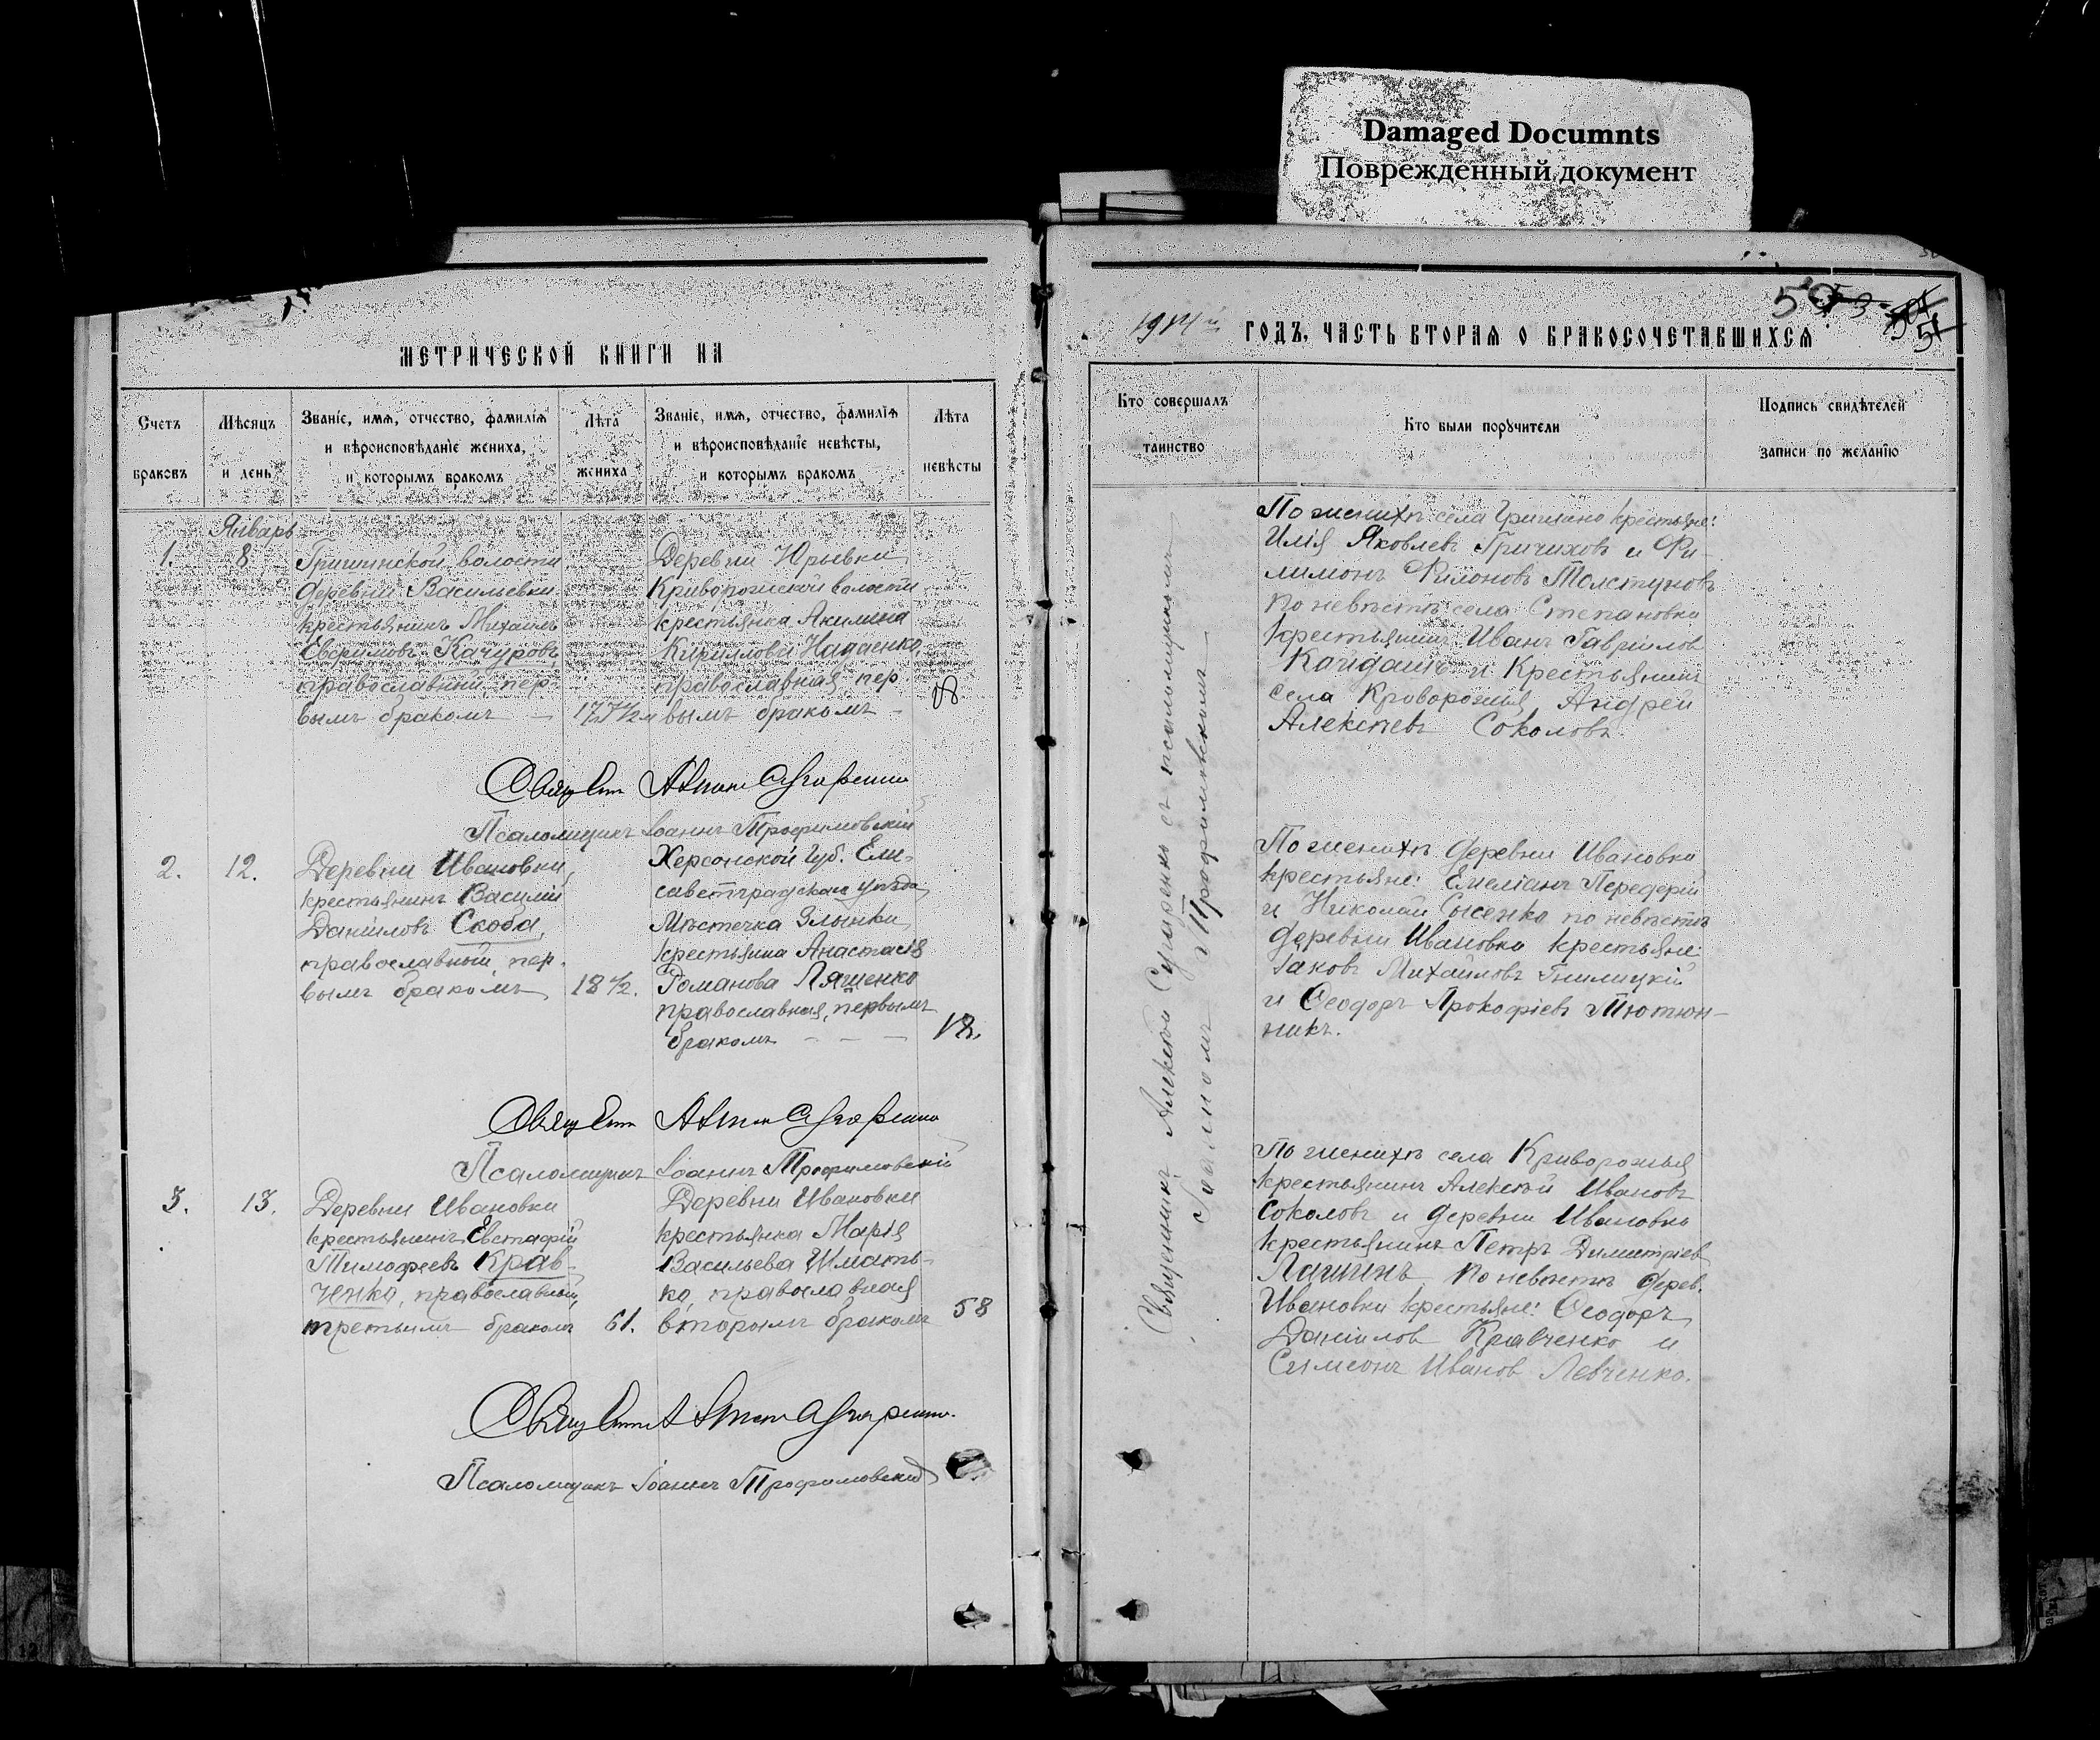 Damaged Documnts
Поврежденный документ
МЕТРИЧЕСКОЙ КНИГИ НА
Счетъ браковъ
Мѣсяцъ и день
Званіе, имя, отчество, фамилія
и вѣроисповѣданіе жениха,
и которымъ бракомъ
Лѣта жениха
Званіе, имя, отчество, фамилія
и вѣроисповѣданіе невѣсты,
и которымъ бракомъ
Лѣта невѣсты
Январь
1.
8
Гришинской волости
деревни Васильевки
крестьянинъ Михаилъ
Евфимовъ Качуровъ,
православный, пер-
вымъ бракомъ
17
Деревни Юрьевки
Криворожской волости
крестьянка Акилина
Кириллова
православная, пер-
вымъ бракомъ
18
Священ
Псаломщикъ Іоаннъ Трофимовскій
2.
12.
Деревни Ивановки,
крестьянинъ Василій
Даніиловъ Скоба,
православный, пер-
вымъ бракомъ
18 1/2.
Херсонской губ. Ели-
саветградскаго уѣзда,
Мѣстечка Злынки
крестьянка Анастасія
Романова Ляшенко
православная, первымъ
бракомъ
18.
Священ
Псаломщикъ Іоаннъ Трофимовскій
3.
13.
Деревни Ивановки
крестьянинъ Евстафій
Тимофеевъ Крав-
ченко, православный,
третьимъ бракомъ
61.
Деревни Ивановки
крестьянка Марія
Васильева Шмать-
ко, православная
вторымъ бракомъ
58
Священ
Псаломщикъ Іоаннъ Трофимовскій
1914й ГОДЪ, ЧАСТЬ ВТОРАЯ О БРАКОСОЧЕТАВШИХСЯ
Кто совершалъ
таинство
Кто были поручители
Подпись свидѣтелей
записи по желанію
Священникъ Алексѣй съ псаломщикомъ
Іоанномъ Трофимовскимъ
По женихѣ: села Гришино крестьяне:
Илія Яковлевъ Гричиховъ и Фи-
лимонъ Филоновъ Толстуновъ
По невѣстѣ: села Степановки
крестьянинъ Иванъ Гавріилов
Кайдашъ и крестьянинъ
села Криворожья Андрей
Алексѣевъ Соколовъ.
По женихѣ: деревни Ивановки
крестьяне: Емеліанъ Передерій
и Николай Сысенко по невѣстѣ
деревни Ивановки крестьяне:
Іаковъ Михаиловъ Гнилицкій
и Ѳеодоръ Прокофіевъ Тютюн-
никъ.
По женихѣ села Криворожья
крестьянинъ Алексѣй Ивановъ
Соколовъ и деревни Ивановки
крестьянинъ Петръ Димитріев
Лашинъ. По невѣстѣ дерев.
Ивановки крестьяне: Ѳеодоръ
Даніилов Кравченко и
Симеонъ Иванов Левченко.